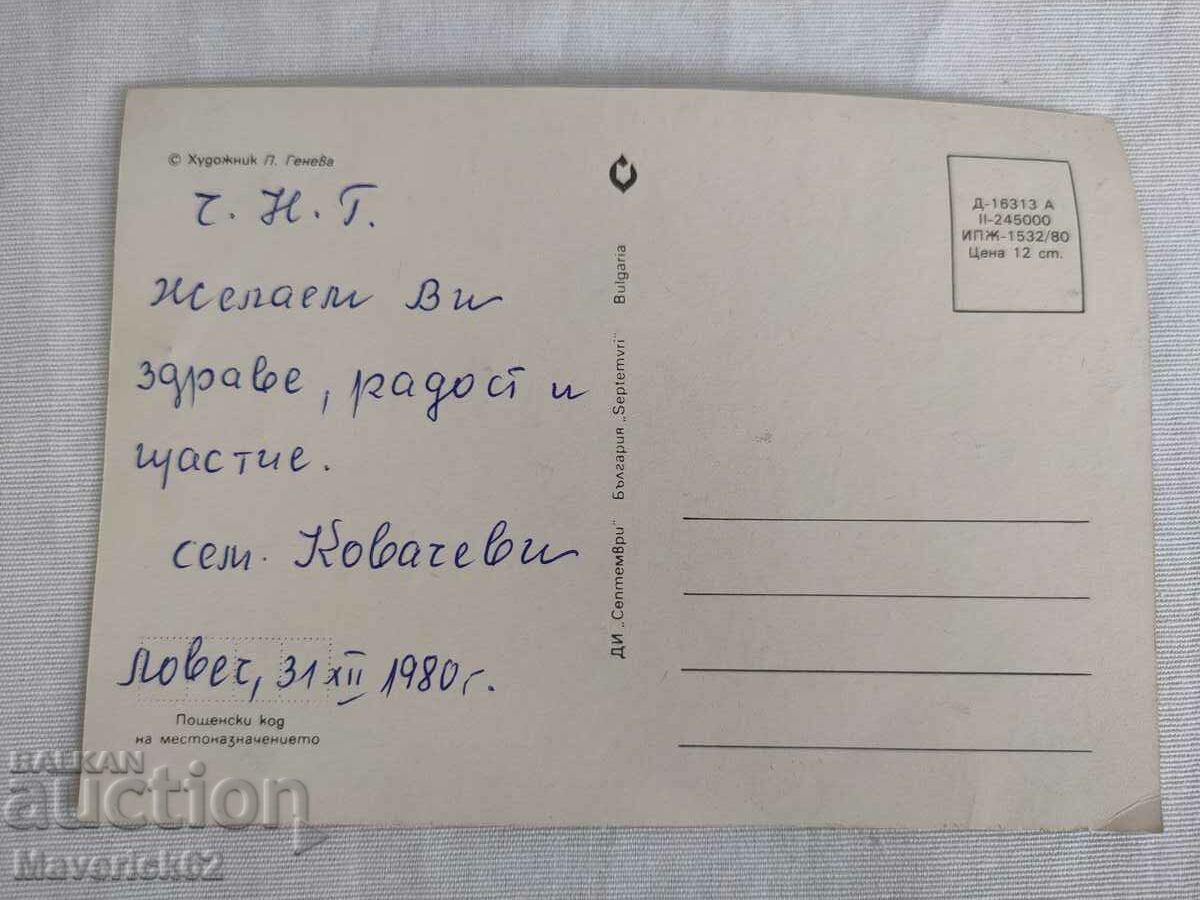 © Художник П. Генева
Ч. Н. Г.
Желаем Ви
здраве, радост и
щастие.
сем. Ковачеви
Ловеч, 31 XII 1980 г.
Пощенски код
на местоназначението
ДИ „Септември" България „Septemvri" Bulgaria
Д-16313 А
II-245000
ИПЖ-1532/80
Цена 12 ст.
BALKAN
auction
Mavorick62